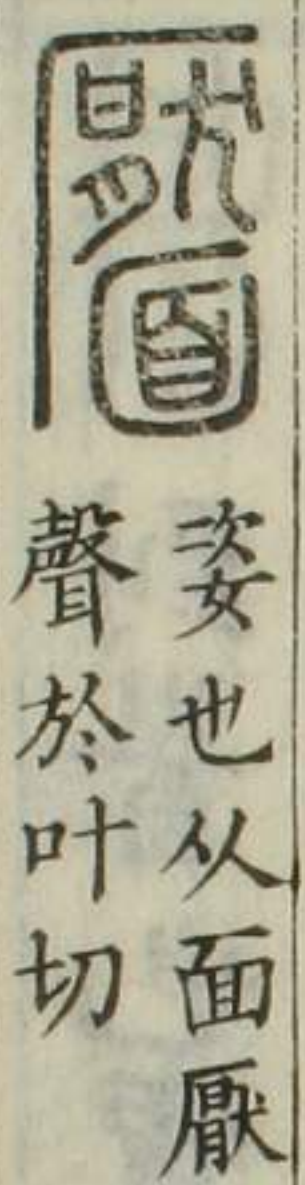 靨
姿也从面厭
聲於叶切